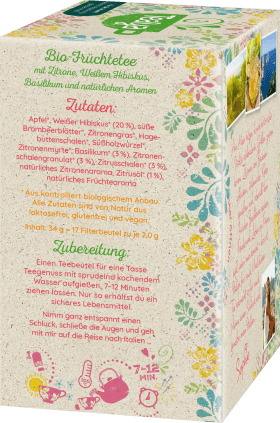 Bio-Früchtetee
mit Zitrone, Weißem Hibiskus,
Basilikum und natürlichen Aromen
Zutaten:
Apfel*, Weißer Hibiskus* (20 %), süße
Brombeerblätter*, Zitronengras*, Hage-
buttenschalen*, Süßholzwürzel*,
Zitronenmyrte*, Basilikum* (3 %), Zitronen-
schalengranulat* (3 %), Zitrusschalen* (3 %),
natürliches Zitronenaroma, Zitrusöl* (1 %),
natürliches Früchtearoma
* Aus kontrolliert biologischem Anbau
Alle Zutaten sind von Natur aus
laktosefrei, glutenfrei und vegan.
Inhalt: 34 g = 17 Filterbeutel zu je 2,0 g
Zubereitung:
Einen Teebeutel für eine Tasse
Teegenuss mit sprudelnd kochendem
Wasser aufgießen, 7-12 Minuten
ziehen lassen. Nur so erhältst du ein
sicheres Lebensmittel.
Nimm ganz entspannt einen
Schluck, schließe die Augen und geh
mit mir auf die Reise nach Italien ...
7-12
MIN.